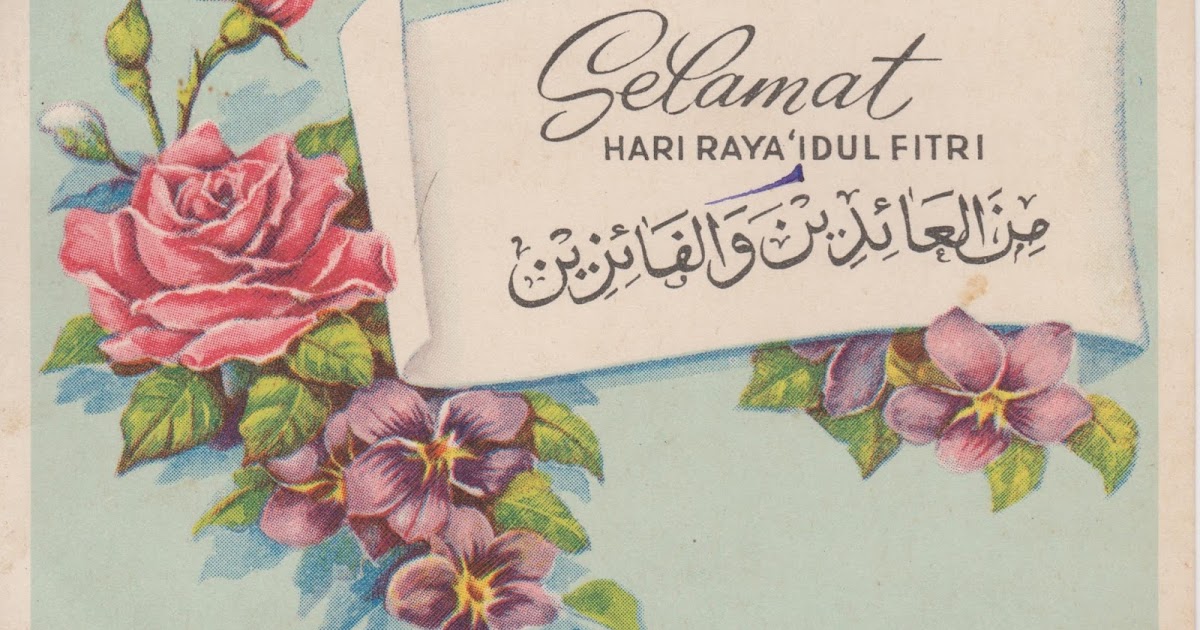 Selamat
HARI RAYA 'IDUL FITRI
مِنَ العَائِدِيْنَ وَالفَائِزِيْن